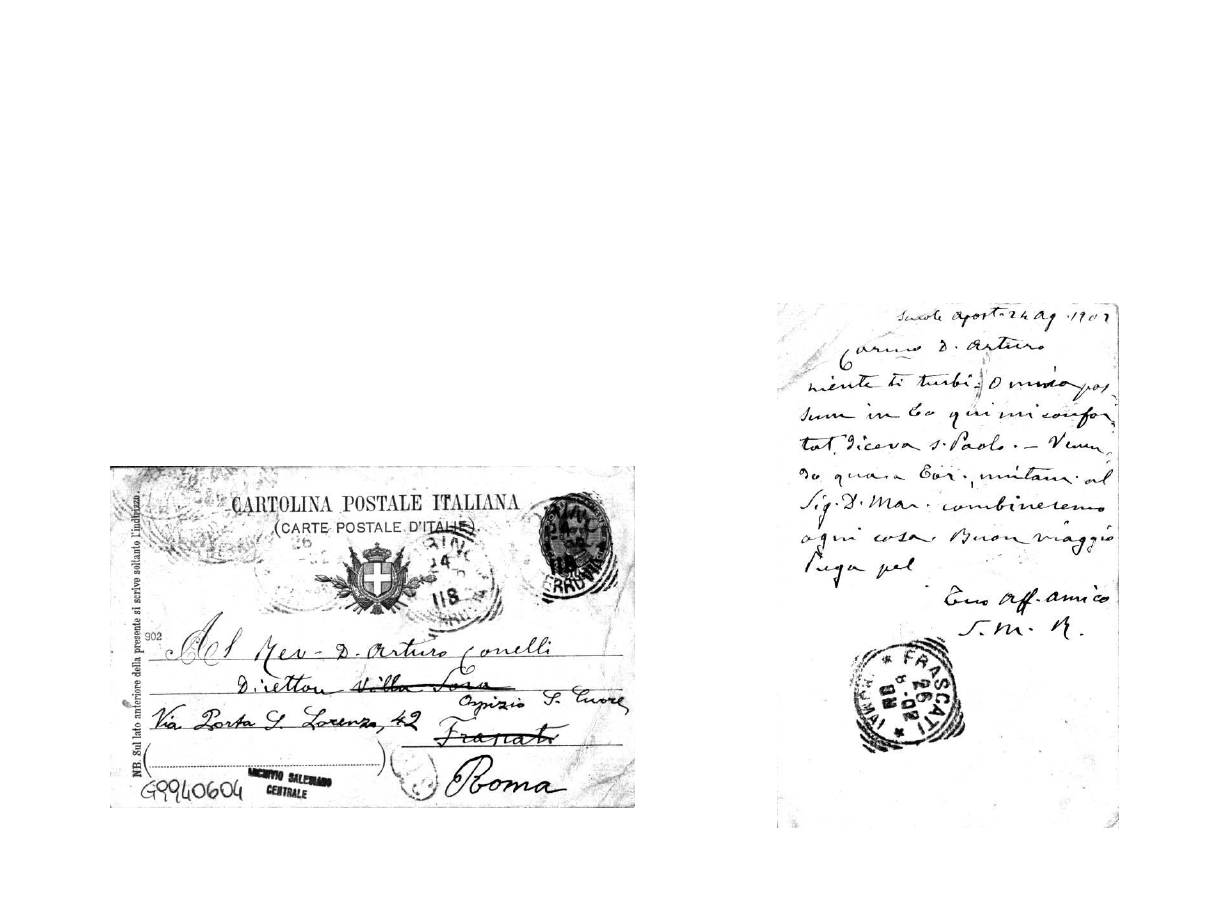 CARTOLINA POSTALE ITALIANA
(CARTE POSTALE D'ITALIE)
NB. Sul lato anteriore della presente si scrive soltanto l'indirizzo.
902
Al Rev- D. Arturo Conelli
Direttore Villa Sora
Ospizio S. Cuore
Via Porta S. Lorenzo, 42
Frascati
Roma
G9940604
ARCHIVIO SALESIANO
CENTRALE
TORINO
118
FERROVIA
apost. 24 Ag. 1902
Carmo D. Arturo
niente ti turbi. Omnia pos-
sum in Eo qui me confor-
tat, diceva S. Paolo. - Venen-
do quassa al
Sig. D. Mar. combineremo
ogni cosa. Buon viaggio
Prega pel
Tuo Aff. amico
S. M. R.
FRASCATI
26
8-02
8M
ROMA